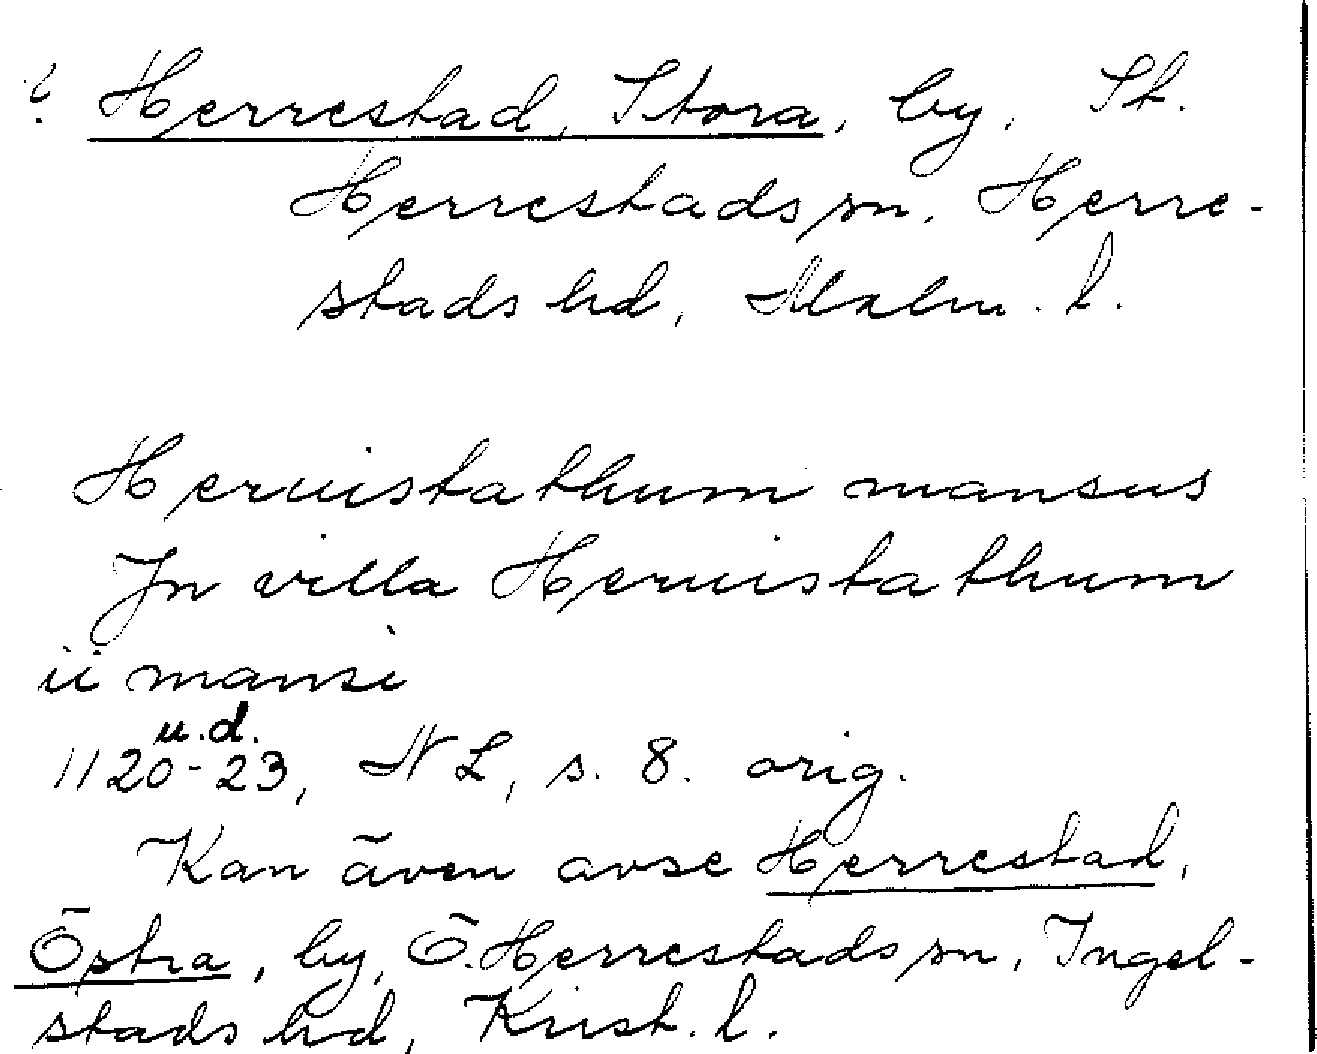 ? Herrestad, Stora, by, St.
Herrestads sn, Herre-
stads hd, Malm. l.
Heruistathum mansus
Jn villa Heruistathum
ii mansi
u.d.
1120-23, NL, s. 8. orig.
Kan även avse Herrestad,
Östra, by, Ö. Herrestads sn, Ingel-
stads hd, Krist. l.